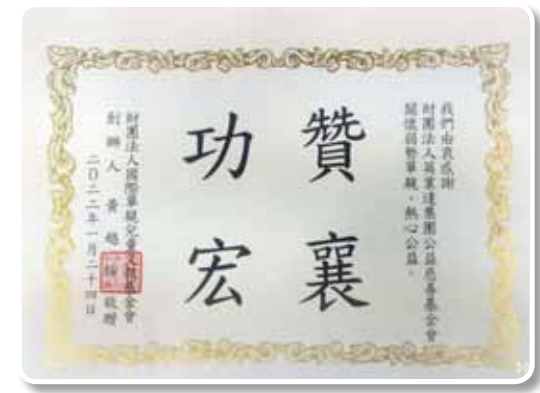 我們由衷感謝
財團法人英業達集團公益慈善基金會
關懷弱勢單親，熱心公益。
贊襄
功宏
財團法人國際單親兒童文教基金會
創辦人 黃越綏 敬贈
二〇二二年一月二十四日